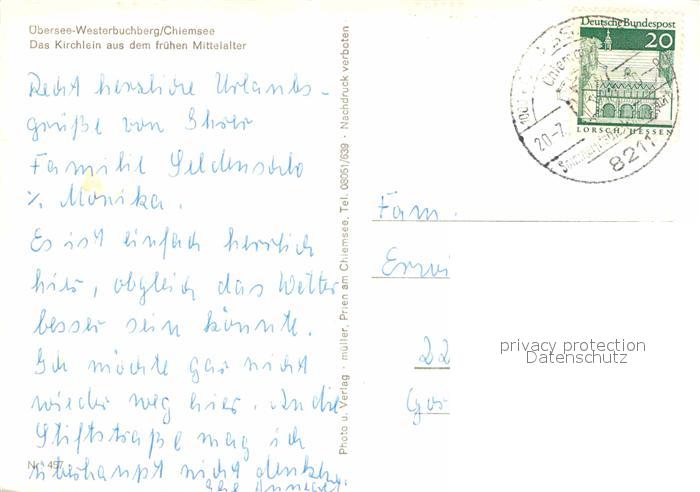 Übersee-Westerbuchberg/Chiemsee
Das Kirchlein aus dem frühen Mittelalter
Recht herzliche Urlaubs-
grüße von Ihrer
Familie
%. Monika.
Es ist einfach herrlich
hier, obgleich das Wetter
besser sein könnte.
Ich möchte gar nicht
wieder weg hier. An die
Stiftstraße mag ich
überhaupt nicht denken.
Ihre
Nr. 457
Photo u. Verlag · müller, Prien am Chiemsee, Tel. 08051/639 · Nachdruck verboten
Deutsche Bundespost
20
LORSCH/HESSEN
Chiemgau
20-7.
8211
Fam.
Erwi
22
privacy protection
Datenschutz